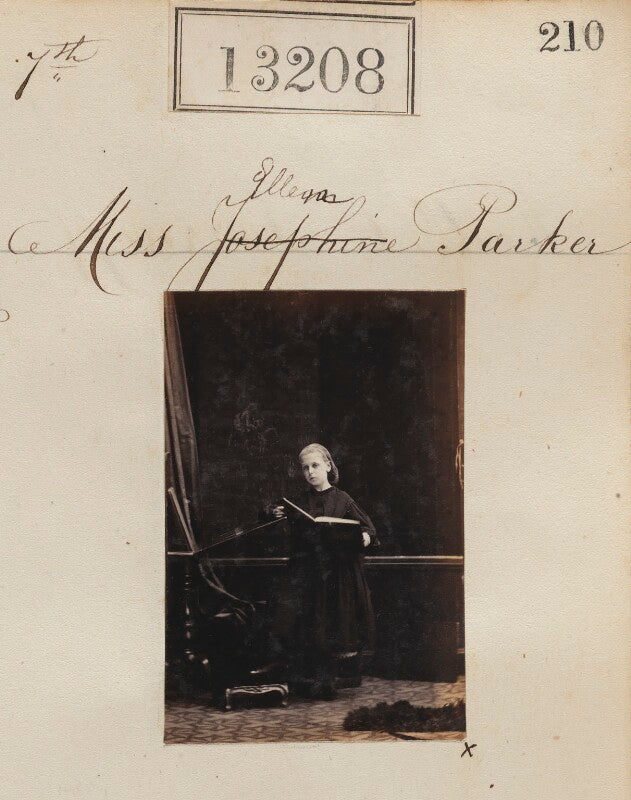 7th
13208
210
Ellen
Miss Josephine Parker
x